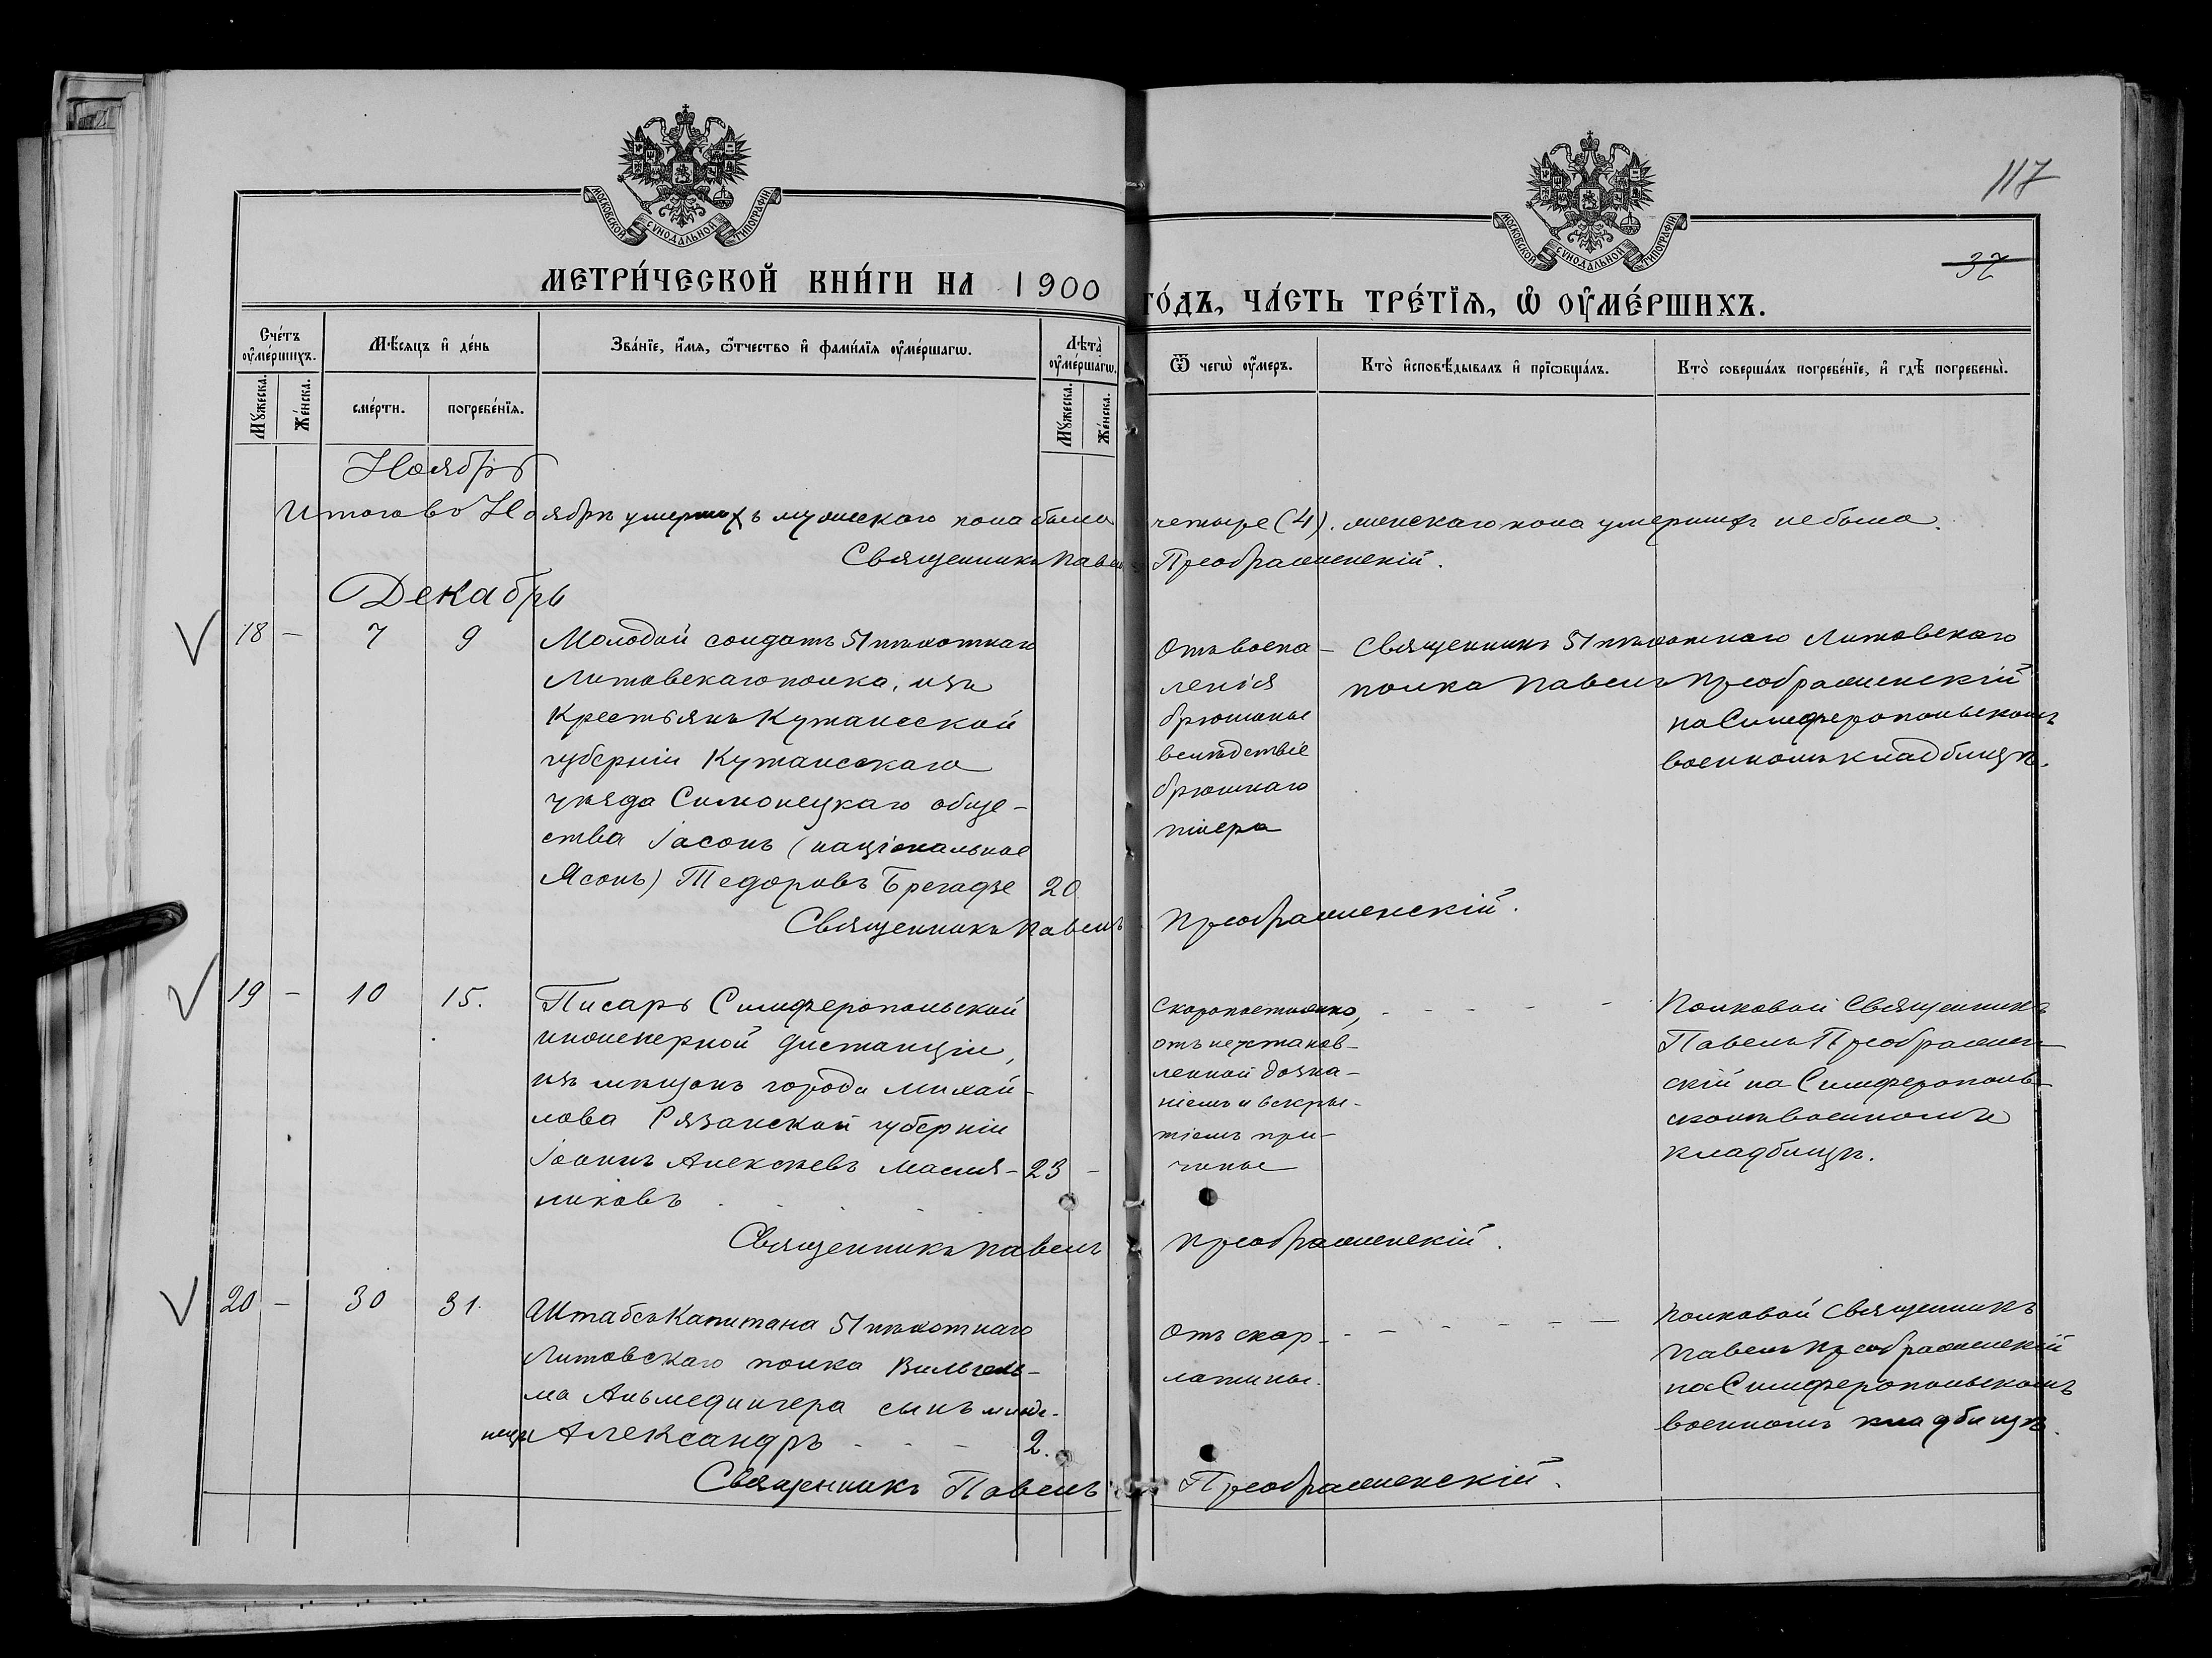 МОСКОВСКОЙ СѴНОДАЛЬНОЙ ТИПОГРАФІИ
МОСКОВСКОЙ СѴНОДАЛЬНОЙ ТИПОГРАФІИ
117
37
МЕТРИ́ЧЕСКОЙ КНИ́ГИ НА 1900 ГО́ДЪ, ЧА́СТЬ ТРЕ́ТЇѦ, Ѡ҆ ОУ҆МЕ́РШИХЪ.
Сче́тъ оу҆ме́ршихъ.
Мꙋ́жеска.
Же́нска.
Мѣ́сяцъ и҆ де́нь
сме́рти.
погребе́нїѧ.
Зва́нїе, и҆́мѧ, ѻ҆́тчество и҆ фами́лїѧ оу҆ме́ршагѡ.
Лѣта̀ оу҆ме́ршагѡ.
Мꙋ́жеска.
Же́нска.
Ѿ чегѡ̀ оу҆́меръ.
Кто̀ и҆сповѣ́дывалъ и҆ прїѡбща́лъ.
Кто̀ соверша́лъ погребе́нїе, и҆ гдѣ̀ погребены̀.
Ноябрь
Итого въ Ноябрѣ умершихъ мужескаго пола было четыре (4). женскаго пола умершихъ не было.
Священникъ Павелъ Преображенскій.
Декабрь
18 - 7 9
Молодой солдатъ 51 пѣхотнаго
Литовскаго полка, изъ
крестьянъ Кутаисской
губерніи Кутаисскаго
уѣзда Симонецкаго обще-
ства Іасонъ (національное
Ясонъ) Тедоровъ Брегадзе 20
Отъ воспа-
ленія
брюшины
вслѣдствіе
брюшнаго
тифа
Священникъ 51 пѣхотнаго Литовскаго
полка Павелъ Преображенскій
на Симферопольскомъ
военномъ кладбищѣ.
Священникъ Павелъ Преображенскій.
19 - 10 15.
Писарь Симферопольской
инженерной дистанціи,
изъ мѣщанъ города Михай-
лова Рязанской губерніи
Іоаннъ Алексѣевъ Масля- 23 -
никовъ
Скоропостижно,
отъ неустанов-
ленной дозна-
ніемъ и вскры-
тіемъ при-
чины
Полковой Священникъ
Павелъ Преображен-
скій на Симферополь-
скомъ военномъ
кладбищѣ.
Священникъ Павелъ Преображенскій.
20 - 30 31.
Штабсъ Капитана 51 пѣхотнаго
Литовскаго полка Вильгель-
ма Альмедингера сынъ младе-
нецъ Александръ - - - 2.
Отъ скар-
латины.
Полковой Священникъ
Павелъ Преображенскій
на Симферопольскомъ
военномъ кладбищѣ.
Священникъ Павелъ Преображенскій.